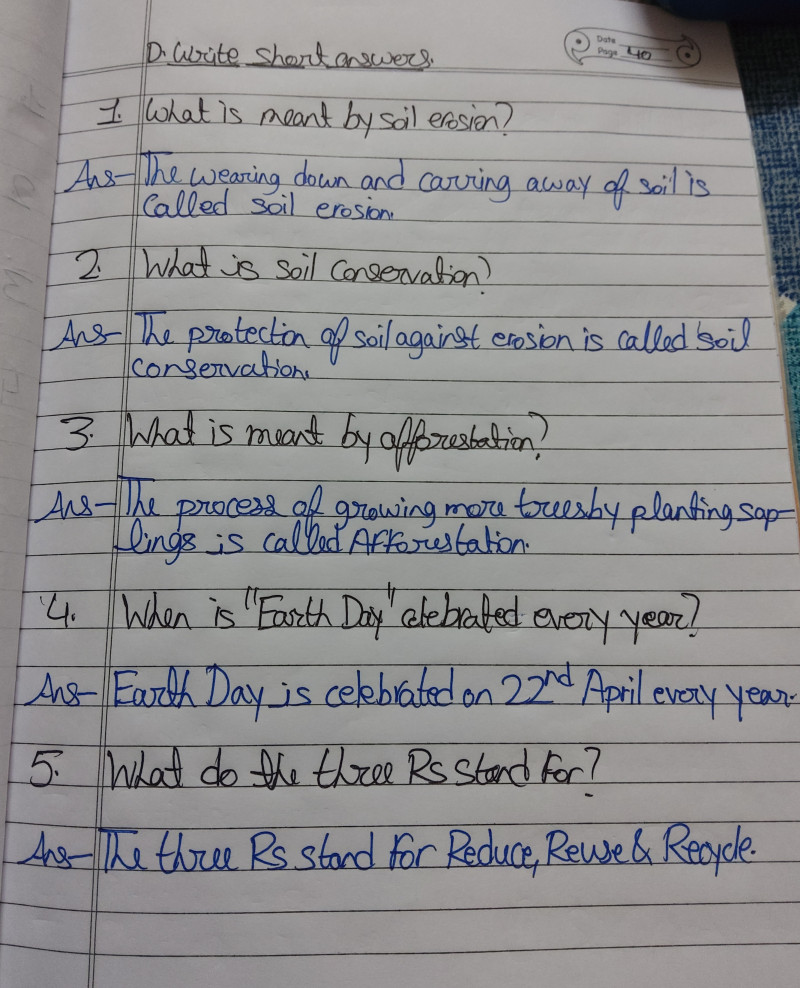 Date
Page 40
D. Write short answers.
1. What is meant by soil erosion?
Ans- The wearing down and carring away of soil is
called soil erosion.
2. What is soil conservation?
Ans- The protection of soil against erosion is called soil
conservation.
3. What is meant by afforestation?
Ans- The process of growing more trees by planting sap-
lings is called Afforestation.
4. When is "Earth Day" celebrated every year?
Ans- Earth Day is celebrated on 22nd April every year.
5. What do the three Rs stand for?
Ans- The three Rs stand for Reduce, Reuse & Recycle.